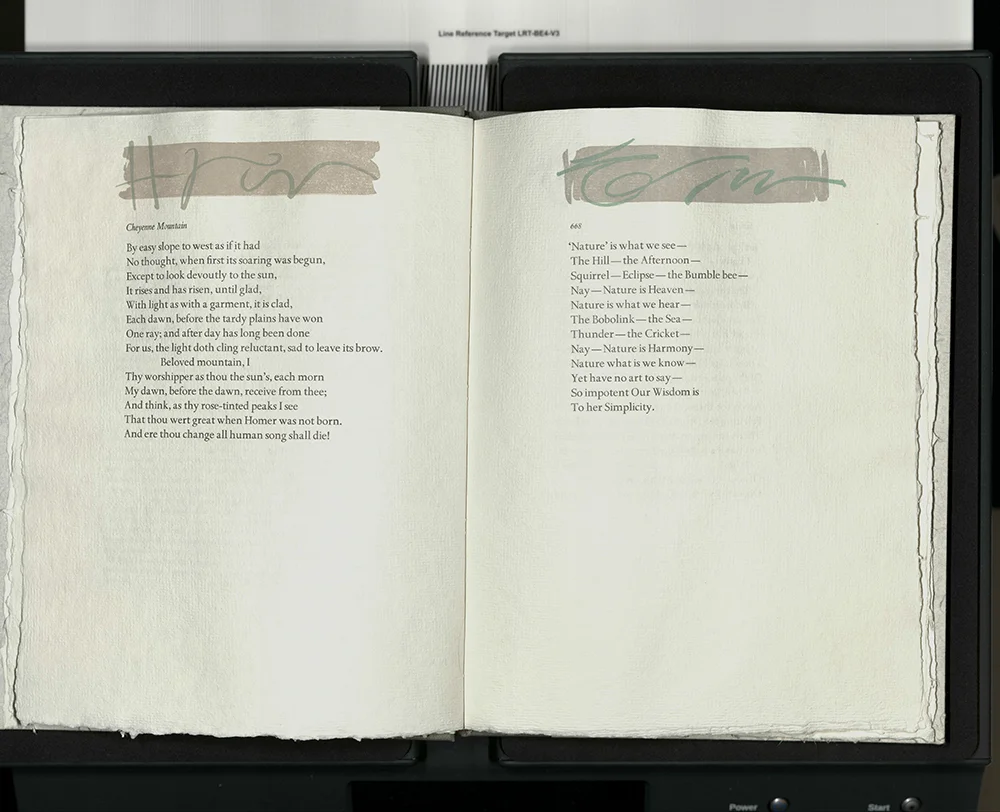 Line Reference Target LRT-BE4-V3
Cheyenne Mountain
By easy slope to west as if it had
No thought, when first its soaring was begun,
Except to look devoutly to the sun,
It rises and has risen, until glad,
With light as with a garment, it is clad,
Each dawn, before the tardy plains have won
One ray; and after day has long been done
For us, the light doth cling reluctant, sad to leave its brow.
Beloved mountain, I
Thy worshipper as thou the sun's, each morn
My dawn, before the dawn, receive from thee;
And think, as thy rose-tinted peaks I see
That thou wert great when Homer was not born.
And ere thou change all human song shall die!
668
‘Nature’ is what we see—
The Hill—the Afternoon—
Squirrel—Eclipse—the Bumble bee—
Nay—Nature is Heaven—
Nature is what we hear—
The Bobolink—the Sea—
Thunder—the Cricket—
Nay—Nature is Harmony—
Nature what is we know—
Yet have no art to say—
So impotent Our Wisdom is
To her Simplicity.
Power
Start